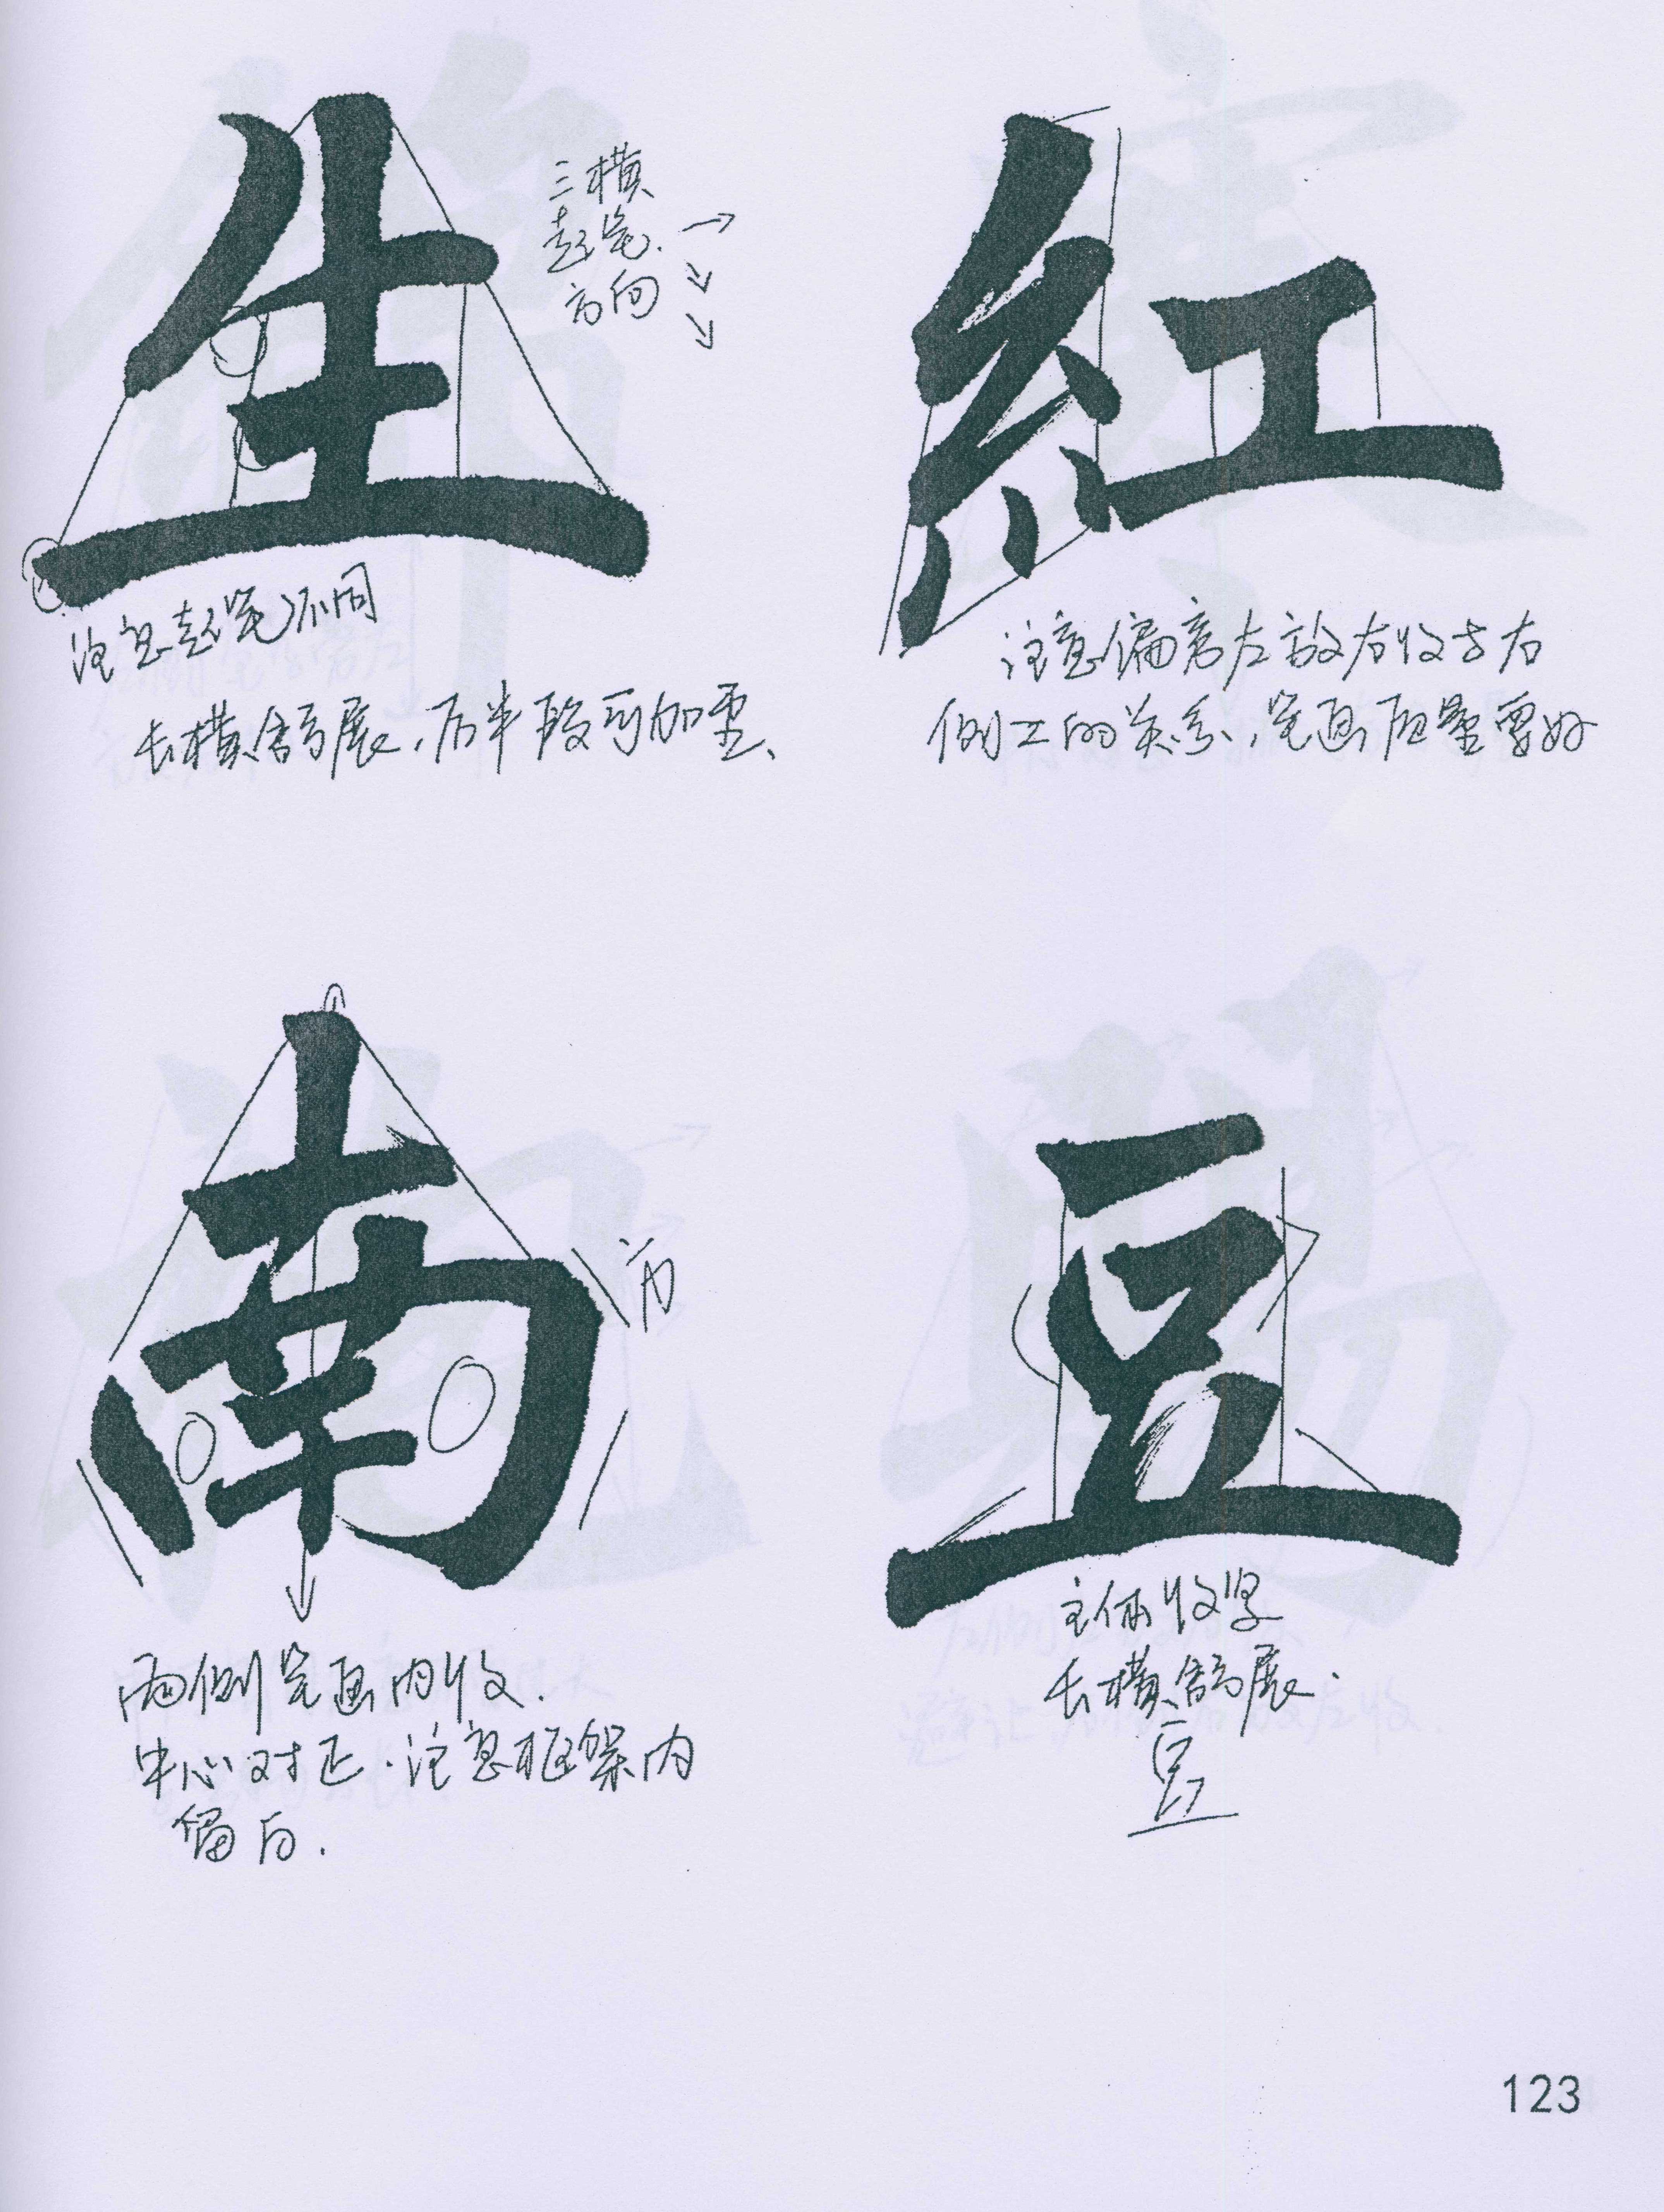 生
三横
起笔
方向
注意起笔不同
长横舒展，后半段可加重、
紅
注意偏旁左放右收与右
侧工的关系，笔画质量要好
南
方
两侧笔画内收.
中心对正.注意框架内
留白.
豆
主体收紧
长横舒展.
豆
123